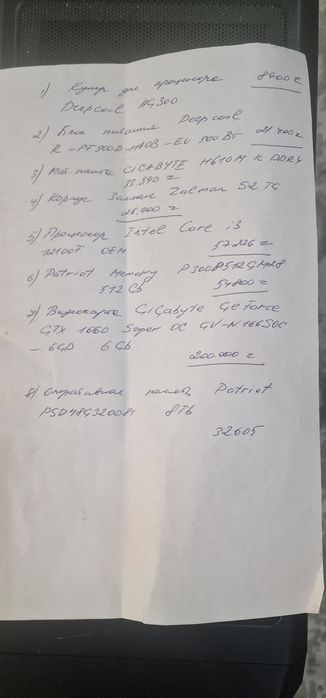 1) Кулер для процессора 8900 г
Deepcool AG300
2) Блок питания Deepcool
R-PF500D-HA0B-EU 500 Вт 21400 г
3) Мат плата GIGABYTE H610M K DDR4
33.390 г
4) Корпус Zalman S2 TG
26.900 г
5) Процессор Intel Core i3
12100F OEM 57226 г
6) Patriot Memory P300P512GM28
512 Gb 54800 г
7) Видеокарта GiGabyte GeForce
GTX 1660 Super OC GV-N166SOC
- 6GD 6 Gb
200.000 г
8) Оперативная память Patriot
PSD48G320081 8Tb
32605